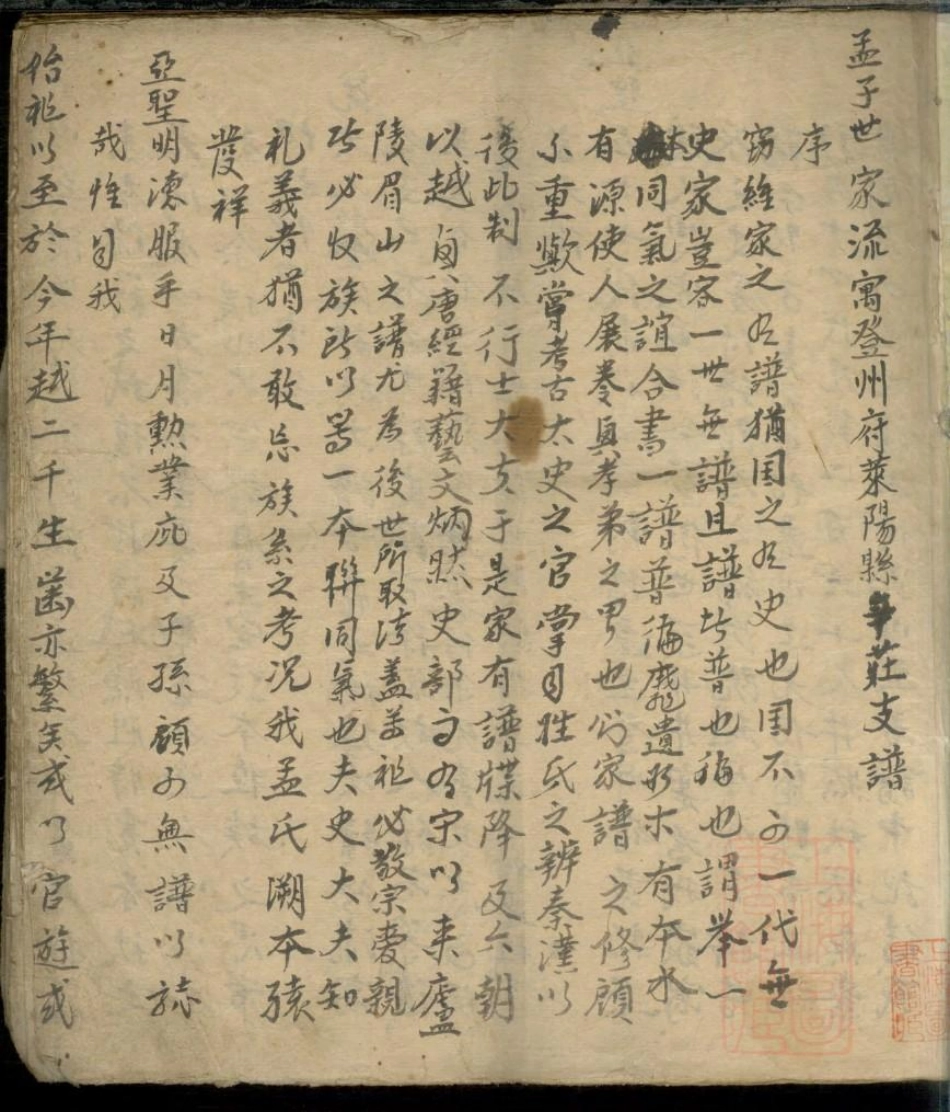 孟子世家流寓登州府萊陽縣莊支譜
序
竊維家之有譜猶国之有史也国不可一代無
史家豈容一世無譜且譜者普也徧也謂举一
本同氣之誼合書一譜普徧靡遺形木有本水
有源使人展卷興孝弟之思也則家譜之修顧
不重歟嘗考古太史之官掌司姓氏之辨秦漢以
後此制不行士大夫于是家有譜牒降及六朝
以越有唐經籍藝文炳然史部而有宋以来廬
陵眉山之譜尤為後世所取法蓋尊祖必敬宗爱親
者必收族所以篤一本聯同氣也夫史大夫知
礼義者猶不敢忘族系之考况我孟氏溯本猿
發祥
亞聖明德服乎日月勲業庇及子孫顧可無譜以誌
哉惟自我
始祖以至於今年越二千生齒亦繁矣或以官遊或